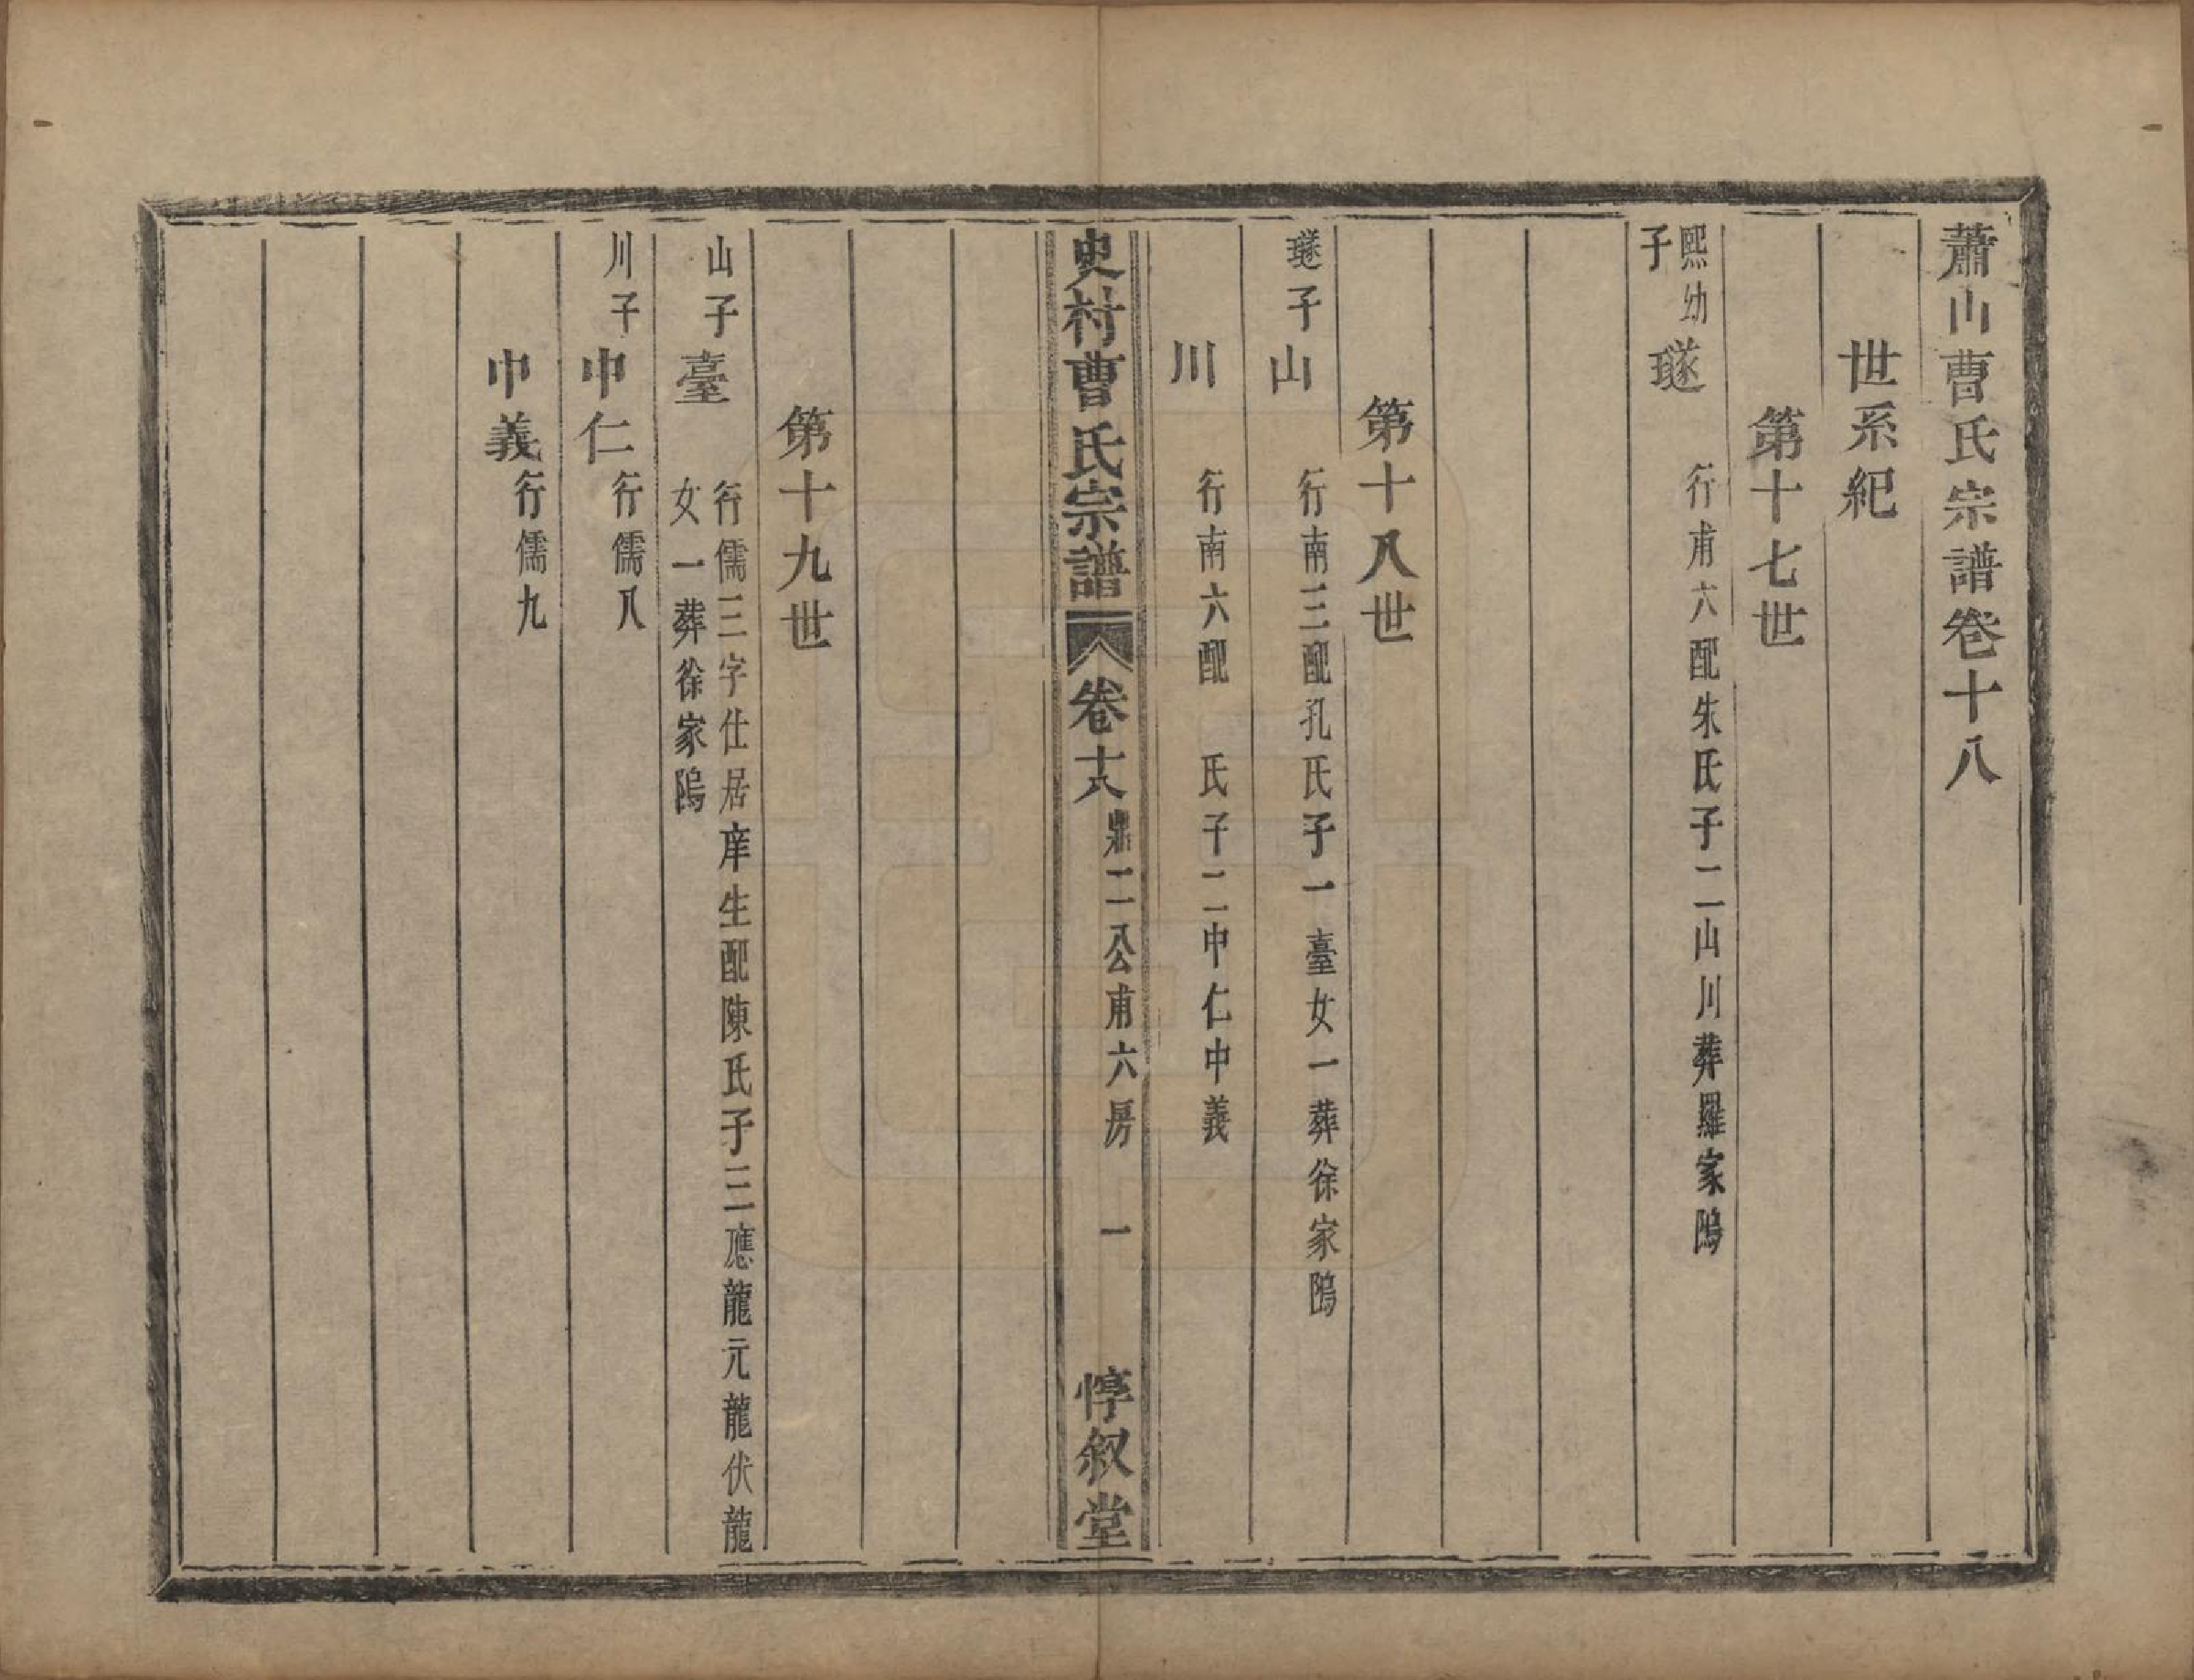 蕭山曹氏宗譜卷十八
世系紀
第十七世
熙幼子
璲
行甫六配朱氏子二山川葬羅家隖
第十八世
璲子
山
行南三配孔氏子一臺女一葬徐家隖
川
行南六配　氏子二中仁中義
史村曹氏宗譜
卷十八
鼎二公甫六房
一
惇叙堂
第十九世
山子
臺
行儒三字仕居庠生配陳氏子三應龍元龍伏龍
女一葬徐家隖
川子
中仁
行儒八
中義
行儒九